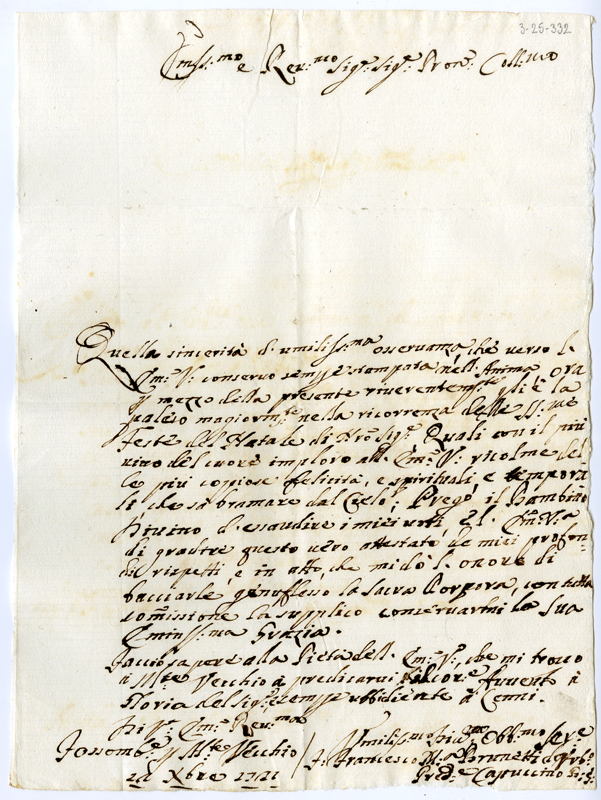 3-25-332
Em.ss:mo e Reu:mo Sig.r Sig.r Pron: Coll:mo
Quella sincerità di umiliss:ma osseruanza, che verso l.
Em: V: conseruo sempre stampata nell'Anima ora
p mezzo della presente riuerentem:te gli è la
paleso magiorm:te nella ricorrenza delle SS:me
Feste del Natale di Nro Sig.r Quali con il più
uiuo del cuore imploro all. Em: V: ricolme del
le più copiose felicità, e spirituali, e tempora
li che sà bramare dal Cielo; Prego il Bambino
Diuino d'esaudire i miei uoti, e l. Em: V:a
di gradire questo uero attestato de miei profon
di rispetti, e in atto, che mi dò l. onore di
bacciarle genuflesso la Sacra Porpora, con tutta
somissione la supplico conseruarmi la Sua
Eminss:ma Grazia.
Faccio sapere alla Pietà dell. Em: V:, che mi trouo
à M:te Vecchio à predicarui l'Auuento à
Gloria del Sig.r e sempre ubbidiente à Cenni.
Di V: Em: Reu:ma
M:te Vecchio
Xbre 1721
Umiliss:mo Diu:mo Obb:mo Ser.e
F. Francesco M:a
Pred:e Capuccino